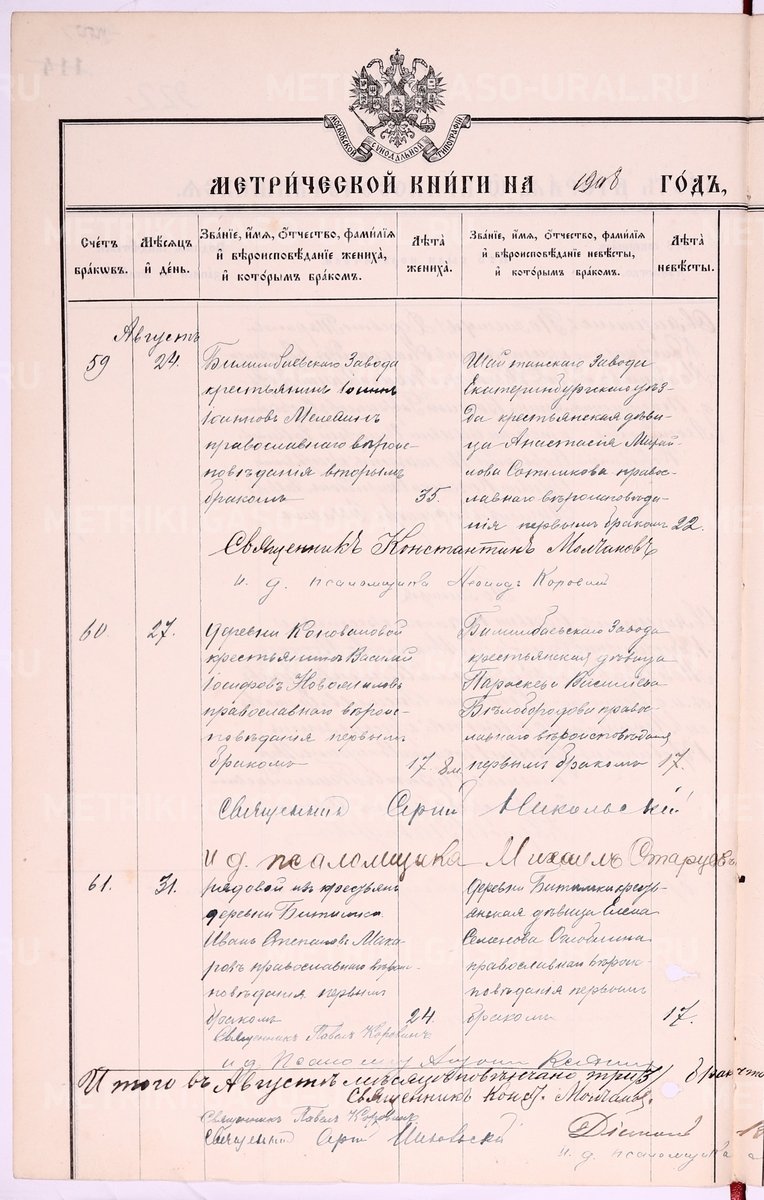 МОСКОВСКОЙ СѴНОДАЛЬНОЙ ТИПОГРАФІИ
METRIKI.GASO-URAL.RU
МЕТРИ́ЧЕСКОЙ КНИ́ГИ НА 1908 ГО́ДЪ,
Сче́тъ бра́кѡвъ.
Мѣ́сяцъ и́ де́нь.
Зва́ніе, и́мя, ѻ́тчество, фами́лія и҆ вѣроисповѣ́даніе жениха̀, и҆ кото́рымъ бра́комъ.
Лѣ́та̀ жениха̀.
Зва́ніе, и́мя, ѻ́тчество, фами́лія и҆ вѣроисповѣ́даніе невѣ́сты, и҆ кото́рымъ бра́комъ.
Лѣ́та̀ невѣ́сты.
Августъ
59
24.
Билимбаевскаго Завода
крестьянинъ Іоаннъ
Іоанновъ Мелехинъ
православнаго вѣроис-
повѣданія вторымъ
бракомъ
35.
Шайтанскаго Завода
Екатеринбургскаго уѣз-
да крестьянская дѣви-
ца Анастасія Михай-
лова Сотникова правос-
лавнаго вѣроисповѣда-
нія первымъ бракомъ
22.
Священникъ Константинъ
и. д. псаломщика Леонидъ Коровин
60.
27.
деревни Коноваловой
крестьянинъ Василій
Іосифовъ
православнаго вѣроис-
повѣданія первымъ
бракомъ
17. 8 м.
Билимбаевскаго Завода
крестьянская дѣвица
Параскева Василіева
Бѣлобородова правос-
лавнаго вѣроисповѣданія
первымъ бракомъ
17.
Священникъ Сергій Никольскій
И д. псаломщика Михаилъ Старцевъ
61.
31.
рядовой изъ крестьянъ
деревни Битимка
Иванъ Степановъ Мака-
ровъ православнаго вѣроис-
повѣданія первымъ
бракомъ
24.
деревни Битимки кресть-
янская дѣвица Елена
Семенова
православнаго вѣроис-
повѣданія первымъ
бракомъ
17.
Священникъ Павелъ Коровинъ
и д Псаломщ
Итого въ Августѣ мѣсяцѣ повѣнчано три /3/ брака
Священникъ Конст.
Священникъ Павелъ Коровин
Священникъ Сергій Никольскій
Діаконъ
и. д. псаломщика